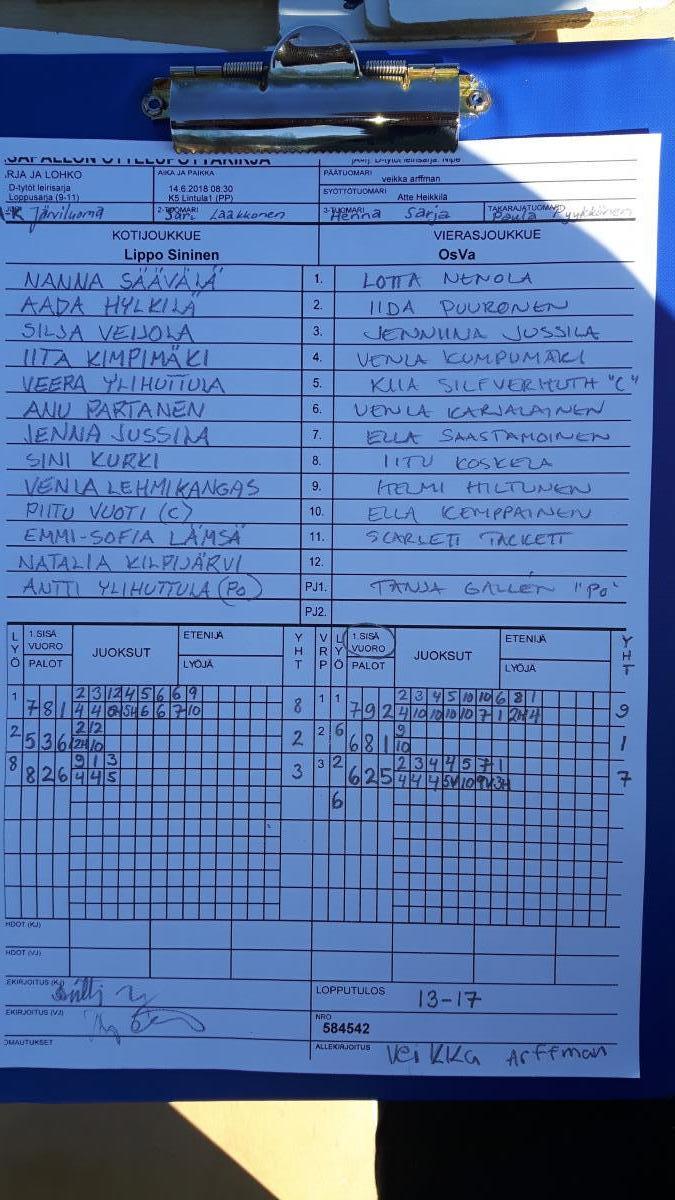 D-tytöt leirisarja. Nipe
RJA JA LOHKO
D-tytöt leirisarja
Loppusarja (9-11)
AIKA JA PAIKKA
14.6.2018 08:30
K5 Lintula1 (PP)
PÄÄTUOMARI
veikka arffman
SYÖTTÖTUOMARI
Atte Heikkilä
Järviluoma
2-TUOMARI
Sari Laakkonen
3-TUOMARI
Henna Sarja
TAKARAJATUOMARI
Paula
KOTIJOUKKUE VIERASJOUKKUE
Lippo Sininen OsVa
NANNA SÄÄVÄLÄ 1. LOTTA NENOLA
AADA HYLKILÄ 2. IIDA PUURONEN
SILJA VEIJOLA 3. JENNIINA JUSSILA
IITA KIMPIMÄKI 4. VENLA KUMPUMÄKI
VEERA YLIHUTTULA 5. KIIA SILFVERHUTH "C"
ANU PARTANEN 6. VENLA KARJALAINEN
JENNA JUSSILA 7. ELLA SAASTAMOINEN
SINI KURKI 8. IITU KOSKELA
VENLA LEHMIKANGAS 9. HELMI HILTUNEN
PIITU VUOTI (C) 10. ELLA KEMPPAINEN
EMMI-SOFIA LÄMSÄ 11. SCARLETT TACKETT
NATALIA KILPIJÄRVI 12.
ANTTI YLIHUTTULA (PO) PJ1. TANJA GALLÉN "PO"
PJ2.
LYÖ 1.SISÄ VUORO PALOT JUOKSUT ETENIJÄ LYÖJÄ YHT VRP LYÖ 1.SISÄ VUORO PALOT JUOKSUT ETENIJÄ LYÖJÄ YHT
1 2 3 12 4 5 6 6 9 1 1 2 3 4 5 10 10 6 8 1
7 8 1 8 7 9 2 4 10 10 10 10 7 1 9
2 2 12 2 6 9
5 3 6 2 6 8 1 10 1
8 9 1 3 3 2 2 3 4 4 5 7 1
8 2 6 4 4 5 3 6 2 5 7
6
HDOT (KJ)
HDOT (VJ)
EKIRJOITUS (KJ)
LOPPUTULOS 13-17
EKIRJOITUS (VJ)
NRO
584542
OMAUTUKSET
ALLEKIRJOITUS Veikka Arffman